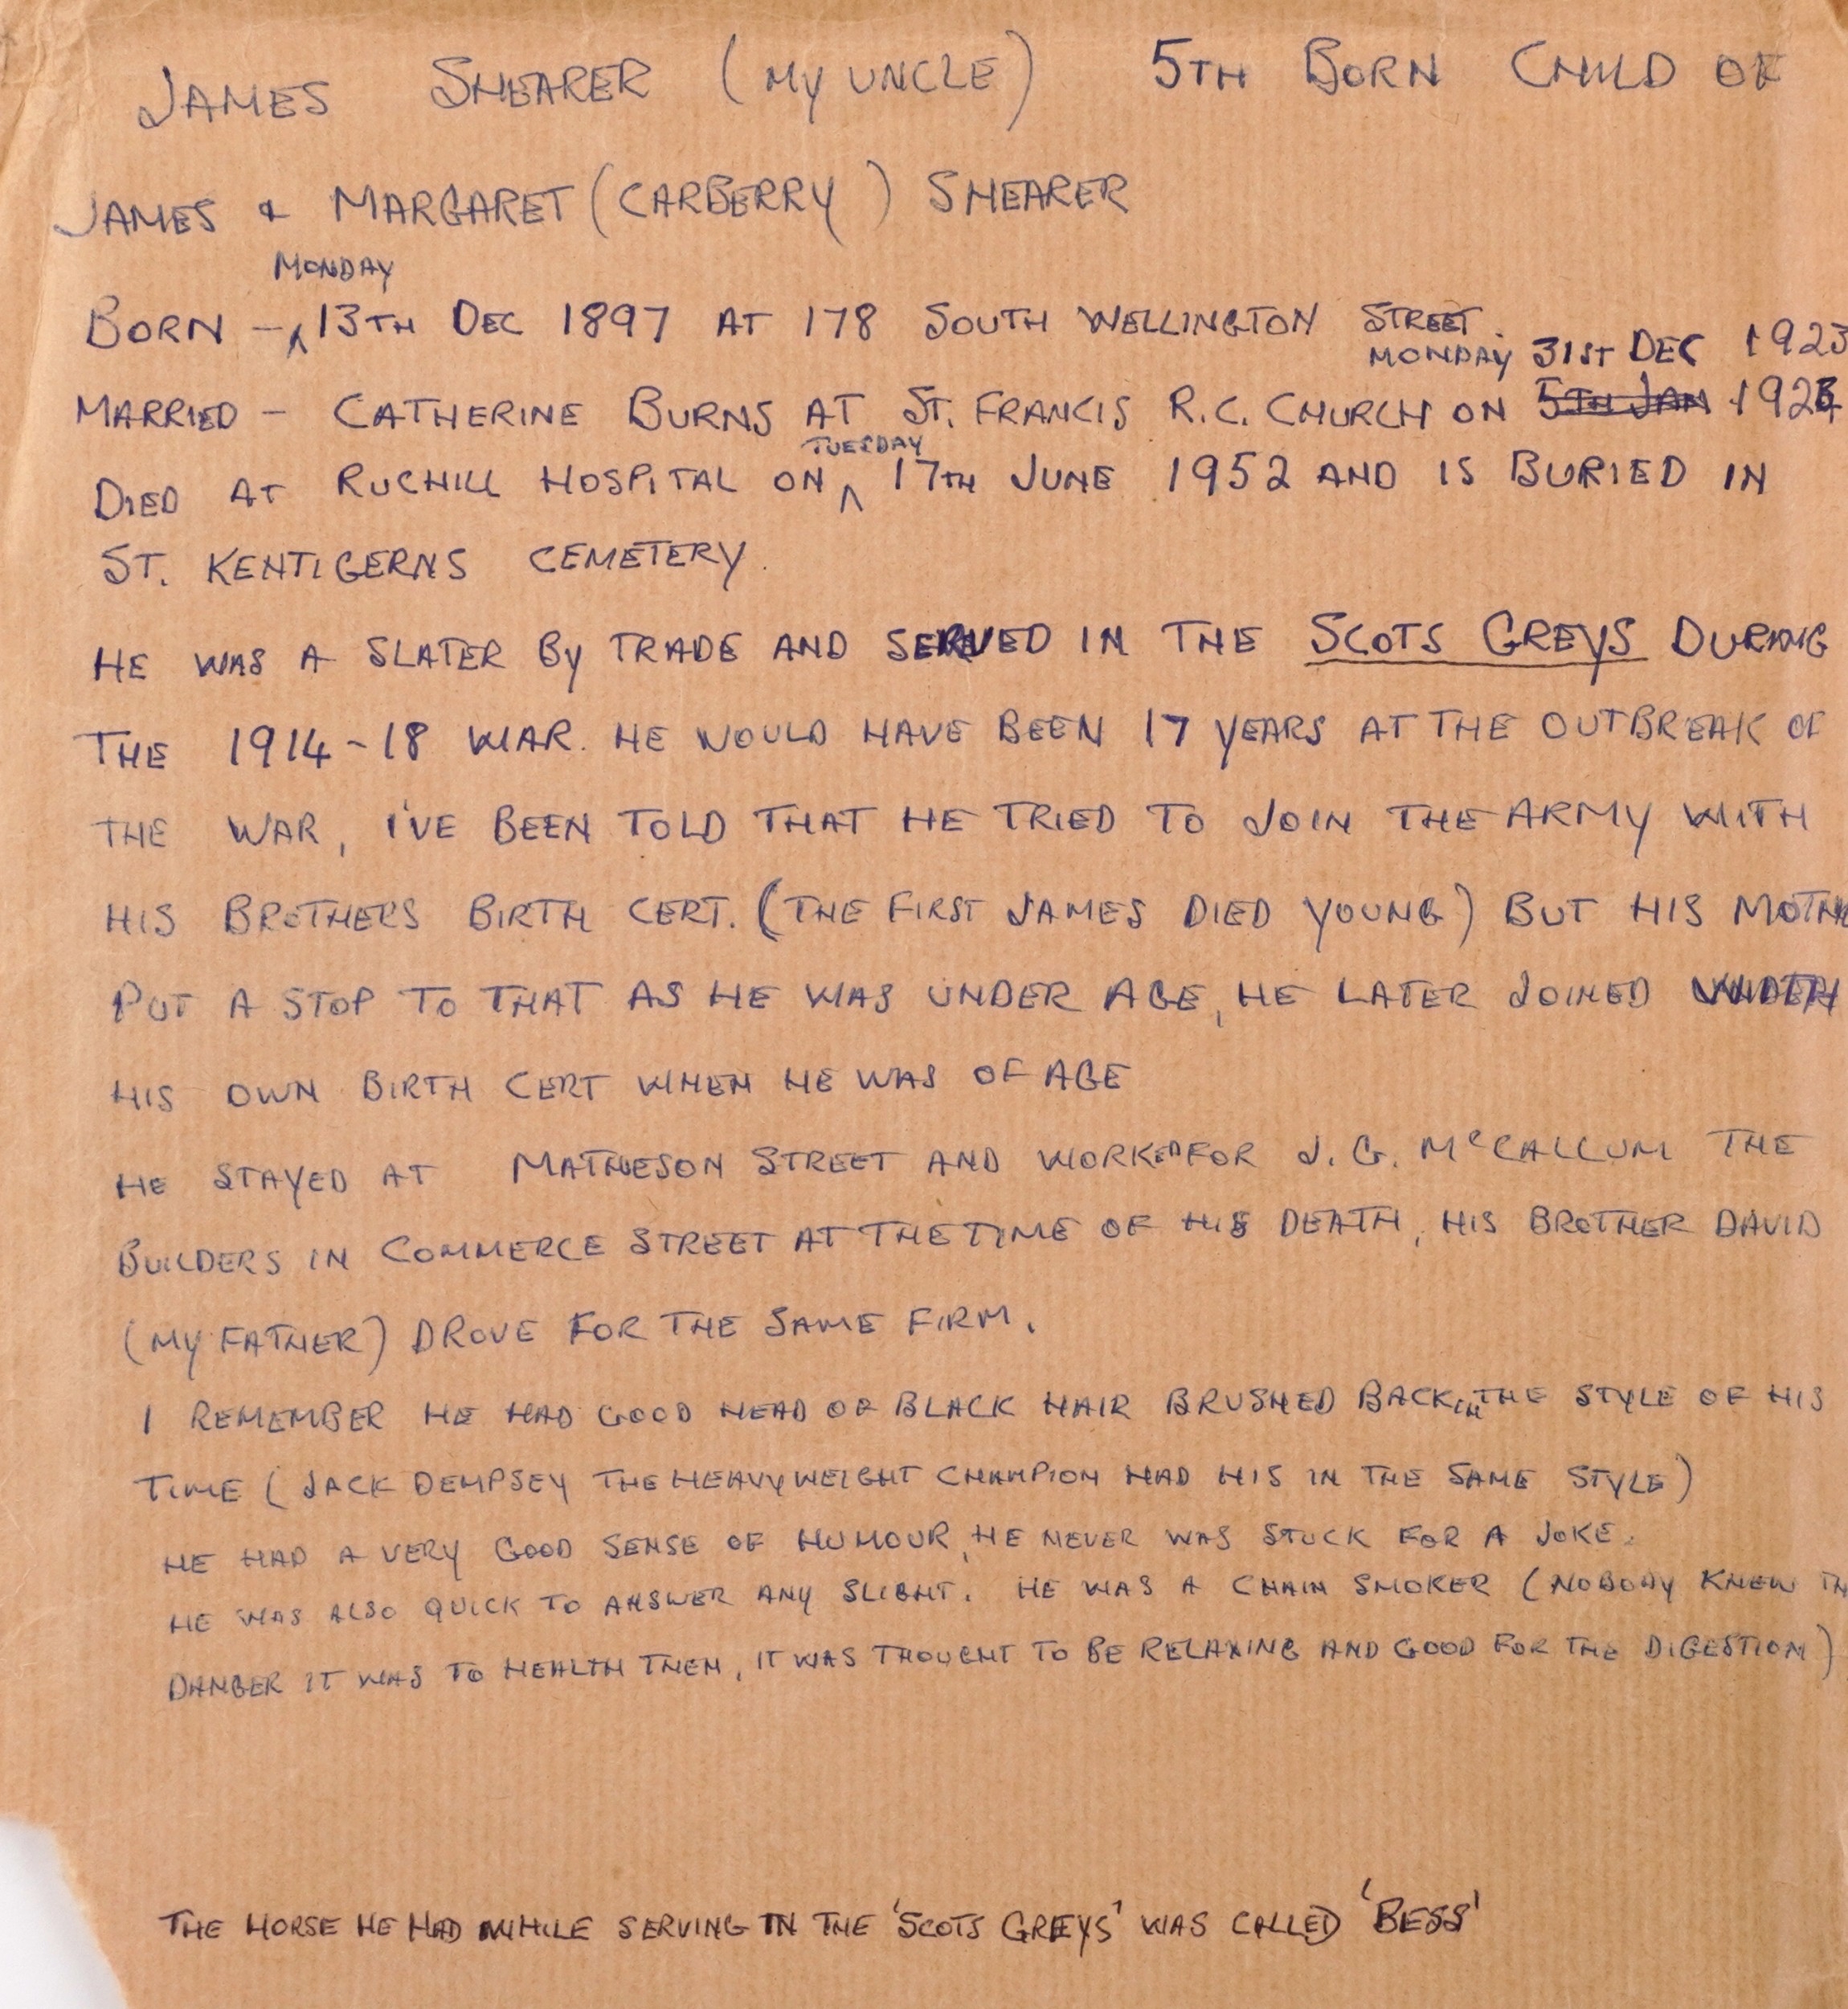 JAMES SHEARER (MY UNCLE) 5TH BORN CHILD OF
JAMES & MARGARET (CARBERRY) SHEARER
MONDAY
BORN - ^ 13TH DEC 1897 AT 178 SOUTH WELLINGTON STREET.
MONDAY 31ST DEC 1923
MARRIED - CATHERINE BURNS AT ST. FRANCIS R.C. CHURCH ON 5TH JAN
TUESDAY
DIED AT RUCHILL HOSPITAL ON ^ 17TH JUNE 1952 AND IS BURIED IN
ST. KENTIGERNS CEMETERY.
HE WAS A SLATER BY TRADE AND SERVED IN THE SCOTS GREYS DURING
THE 1914-18 WAR. HE WOULD HAVE BEEN 17 YEARS AT THE OUTBREAK OF
THE WAR, I'VE BEEN TOLD THAT HE TRIED TO JOIN THE ARMY WITH
HIS BROTHERS BIRTH CERT. (THE FIRST JAMES DIED YOUNG) BUT HIS
PUT A STOP TO THAT AS HE WAS UNDER AGE, HE LATER JOINED
HIS OWN BIRTH CERT WHEN HE WAS OF AGE
HE STAYED AT MATHESON STREET AND WORKED FOR J. G. McCALLUM THE
BUILDERS IN COMMERCE STREET AT THE TIME OF HIS DEATH, HIS BROTHER DAVID
(MY FATHER) DROVE FOR THE SAME FIRM.
I REMEMBER HE HAD GOOD HEAD OF BLACK HAIR BRUSHED BACK IN THE STYLE OF HIS
TIME (JACK DEMPSEY THE HEAVYWEIGHT CHAMPION HAD HIS IN THE SAME STYLE)
HE HAD A VERY GOOD SENSE OF HUMOUR, HE NEVER WAS STUCK FOR A JOKE.
HE WAS ALSO QUICK TO ANSWER ANY SLIGHT. HE WAS A CHAIN SMOKER (NOBODY KNEW
DANGER IT WAS TO HEALTH THEN, IT WAS THOUGHT TO BE RELAXING AND GOOD FOR THE DIGESTION)
THE HORSE HE HAD WHILE SERVING IN THE 'SCOTS GREYS' WAS CALLED 'BESS'